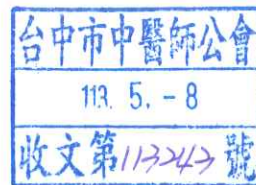 台中市中醫師公會
113. 5. -8
收文第113243號